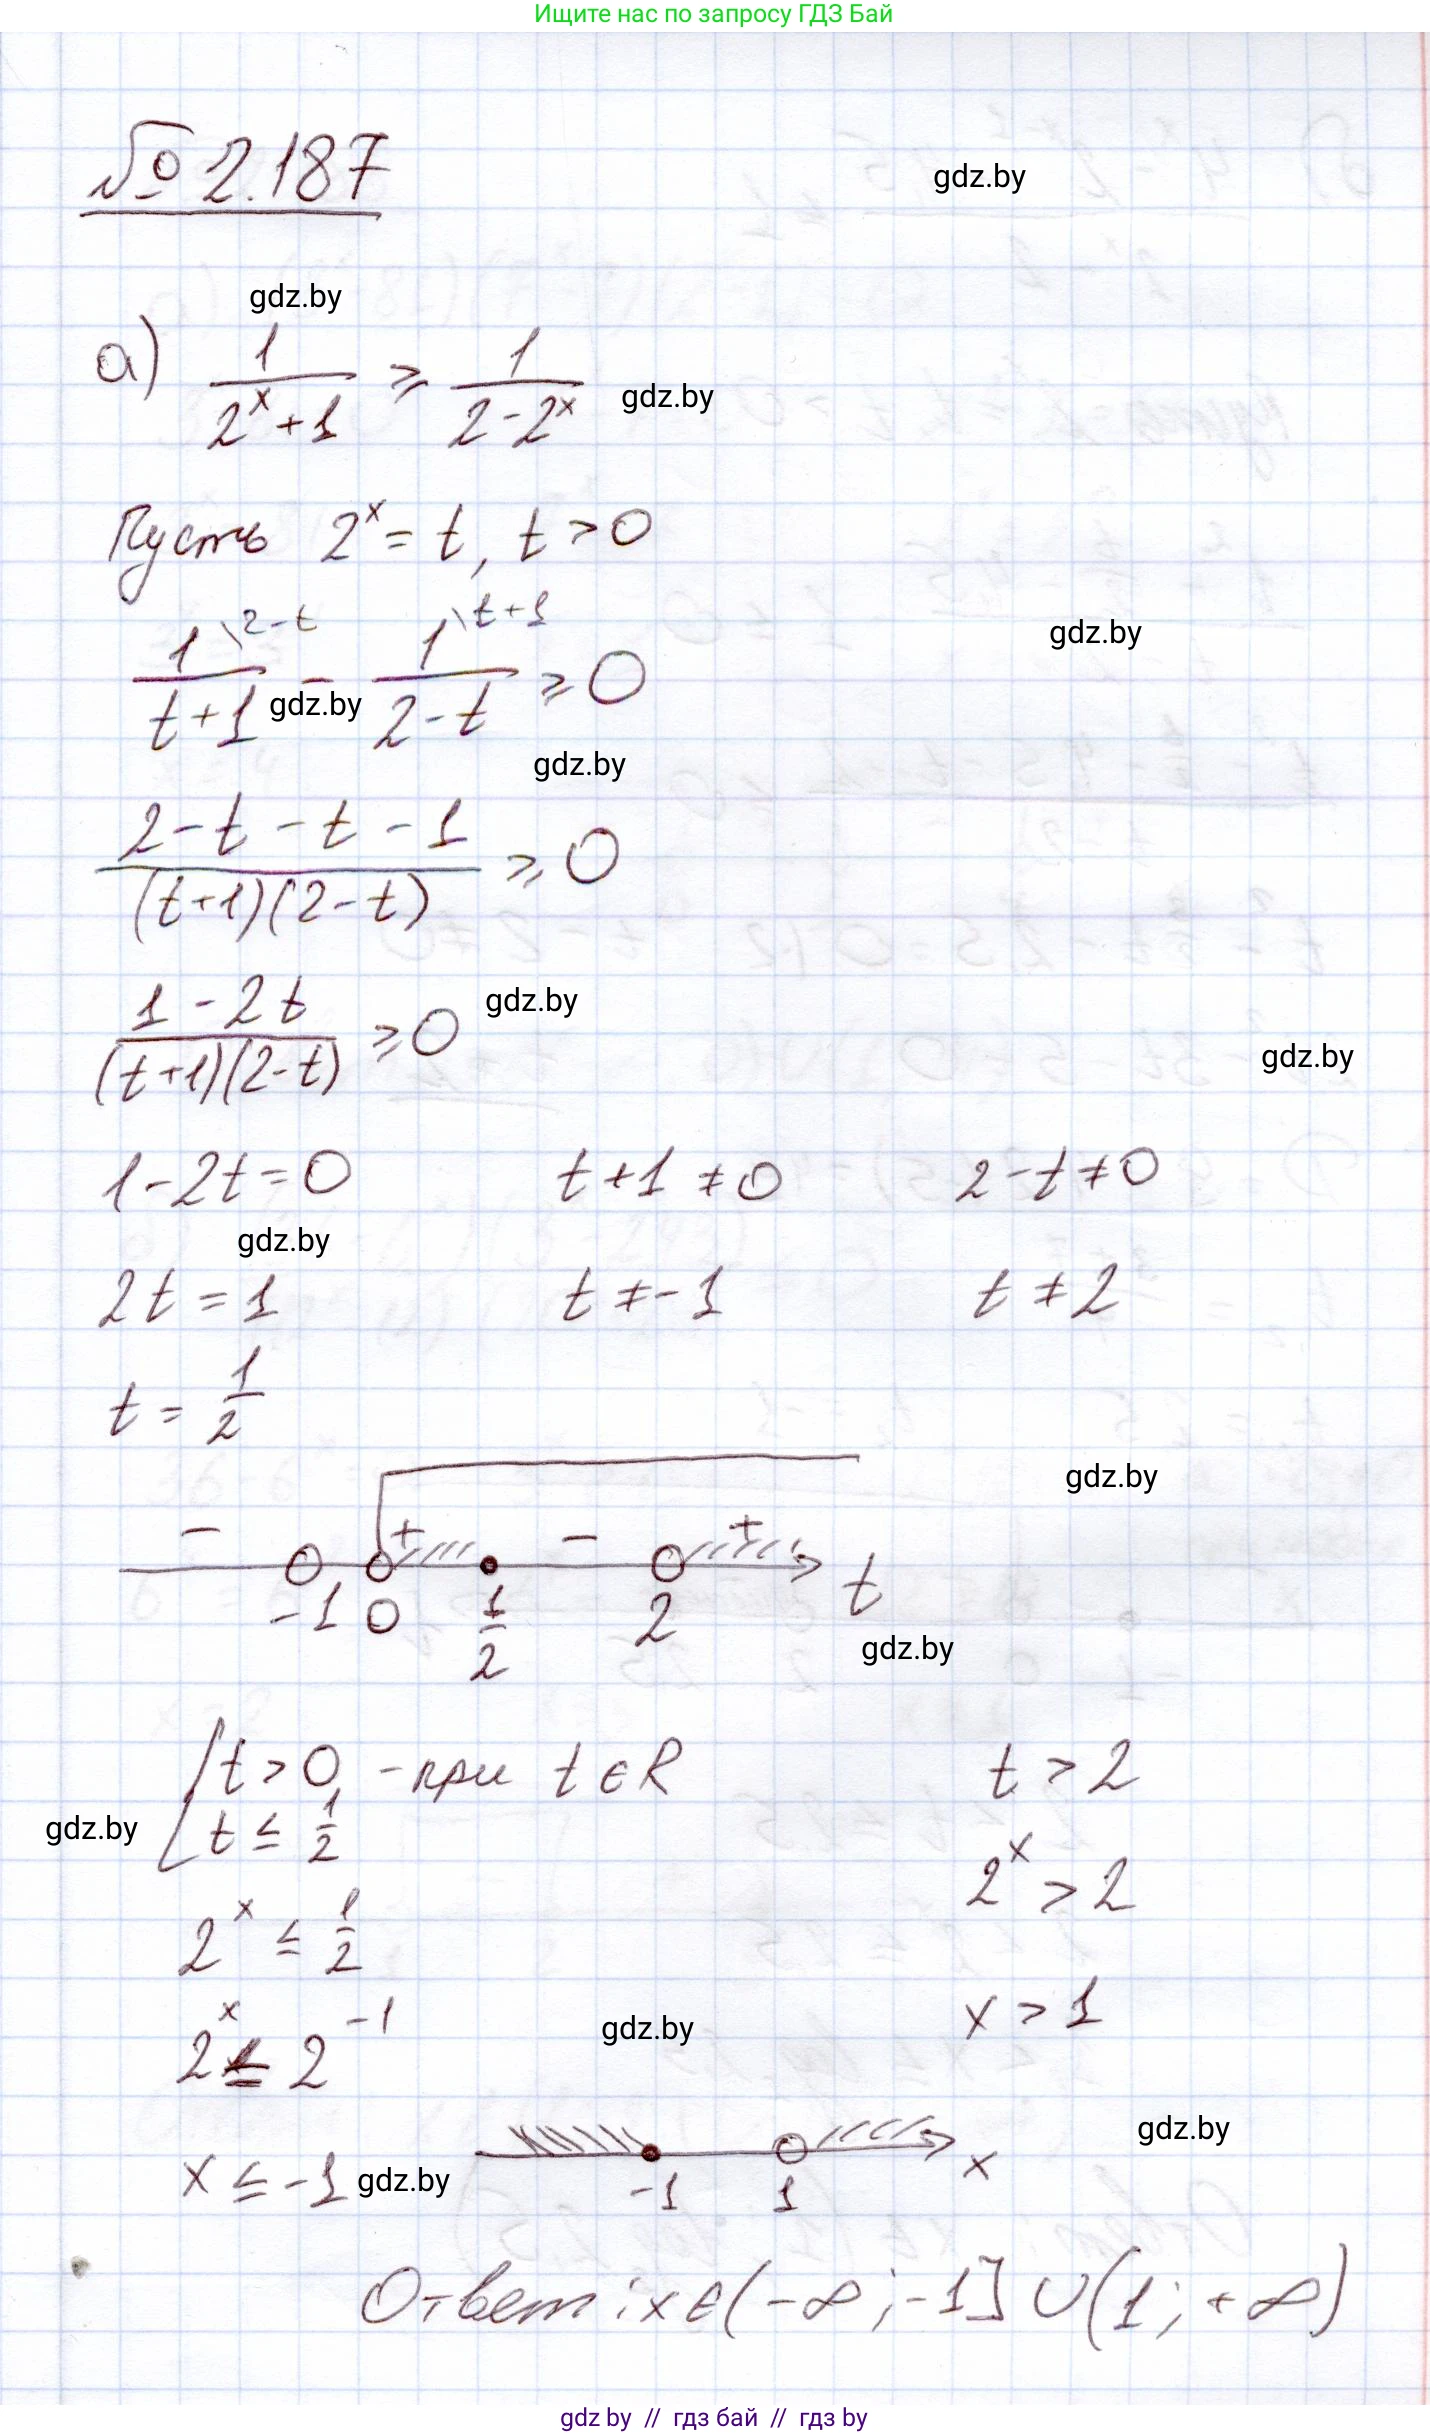 Ищите нас по запросу ГДЗ Бай
№ 2.187
gdz.by
gdz.by
а) 1/(2^x+1) ≥ 1/(2-2^x)
gdz.by
Пусть 2^x = t, t > 0
1\2-t/(t+1) - 1\t+1/(2-t) ≥ 0
gdz.by
gdz.by
gdz.by
(2-t-t-1)/((t+1)(2-t)) ≥ 0
(1-2t)/((t+1)(2-t)) ≥ 0
gdz.by
gdz.by
1-2t=0 t+1≠0 2-t≠0
gdz.by
2t=1 t≠-1 t≠2
t = 1/2
gdz.by
- + - +
-1 0 1/2 2 t
gdz.by
t > 0 -при t∈R t > 2
gdz.by
t ≤ 1/2
2^x ≤ 1/2 2^x > 2
2^x ≤ 2^-1 x > 1
gdz.by
gdz.by
x ≤ -1 gdz.by
-1 1 x
Ответ: x∈(-∞;-1]∪(1;+∞)
gdz by // гдз бай // гдз by